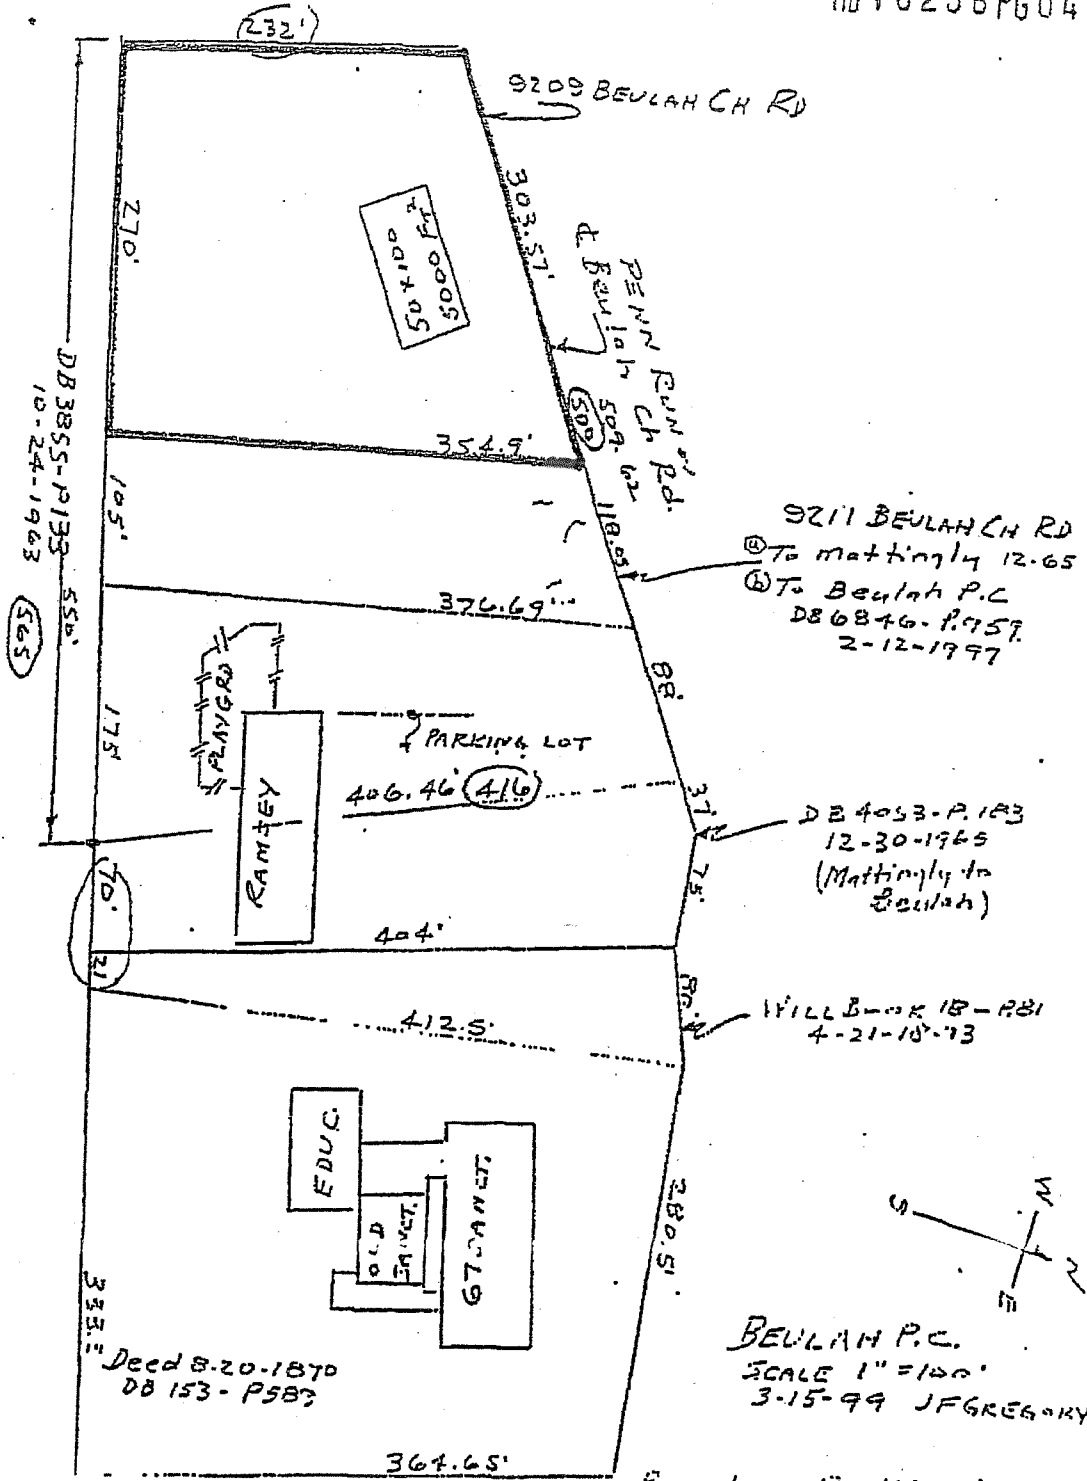 232'
9209 BEULAH CH RD
303.57'
270'
50 x 100
5000 FT²
PENN RUN
& Beulah Ch Rd.
509.62
500
354.9'
118.05
105'
DB 3855-P133 550'
10-24-1963
565
9211 BEULAH CH RD
(a) To Mattingly 12.65
(b) To Beulah P.C
DB 6846-P.959
2-12-1997
376.69'
88'
PLAYGRD
175'
PARKING LOT
RAMSEY
406.46' 416'
37'
DB 4053-P.183
12-30-1965
(Mattingly to
Beulah)
75'
70'
21
404'
412.5'
WILL BOOK 18-P81
EDUC.
OLD
SANCT.
67 SANCT.
280.5'
W
S
N
E
333.
Deed 8-20-1870
DB 153-P583
BEULAH P.C.
SCALE 1" = 100'
3-15-99 JFGREGORY
364.65'